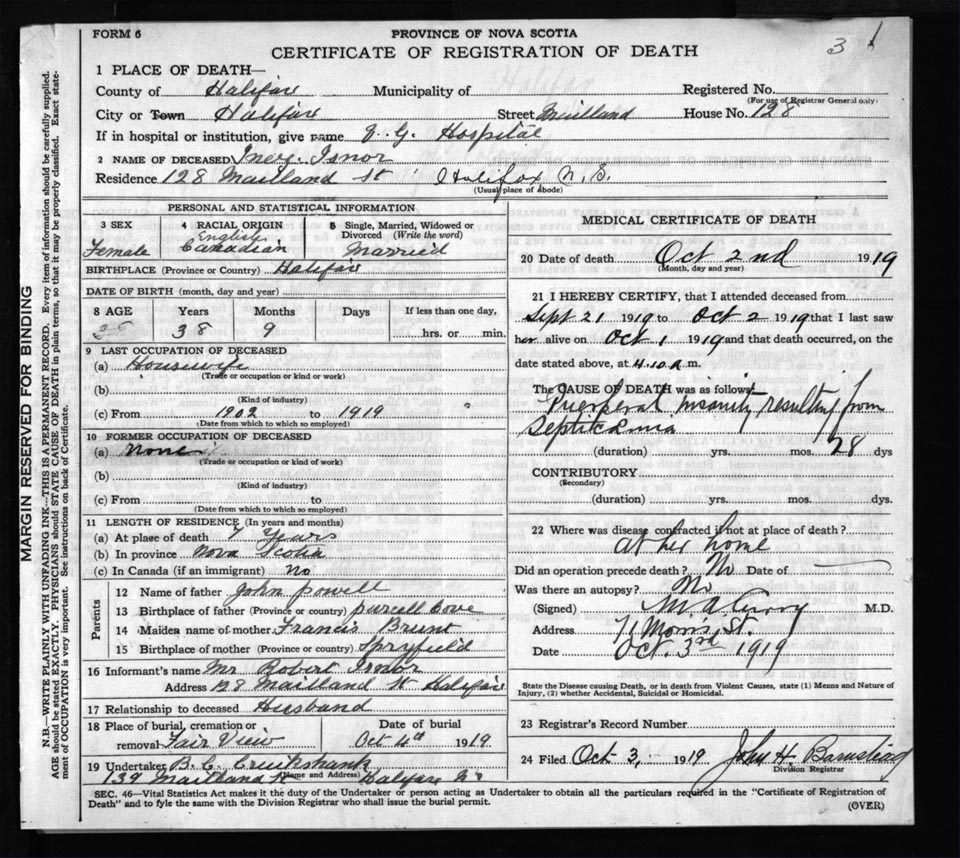 FORM 6
PROVINCE OF NOVA SCOTIA
3 1
CERTIFICATE OF REGISTRATION OF DEATH
1 PLACE OF DEATH—
County of Halifax Municipality of Registered No.
(For use of Registrar General only)
City or Town Halifax Street Maitland House No. 128
If in hospital or institution, give name V. G. Hospital
2 NAME OF DECEASED Inez Isnor
Residence 128 Maitland St Halifax N.S.
(Usual place of abode)
PERSONAL AND STATISTICAL INFORMATION
3 SEX Female
4 RACIAL ORIGIN English Canadian
5 Single, Married, Widowed or Divorced (Write the word) Married
BIRTHPLACE (Province or Country) Halifax
DATE OF BIRTH (month, day and year)
8 AGE Years 38 Months 9 Days If less than one day, hrs. or min.
9 LAST OCCUPATION OF DECEASED
(a) Housewife
(Trade or occupation or kind or work)
(b)
(Kind of industry)
(c) From 1902 to 1919
(Date from which to which so employed)
10 FORMER OCCUPATION OF DECEASED
(a) None
(Trade or occupation or kind of work)
(b)
(Kind of industry)
(c) From to
(Date from which to which so employed)
11 LENGTH OF RESIDENCE (In years and months)
(a) At place of death 7 Years
(b) In province Nova Scotia
(c) In Canada (if an immigrant) No
Parents
12 Name of father John Powell
13 Birthplace of father (Province or country) purcell Cove
14 Maiden name of mother Francis Brunt
15 Birthplace of mother (Province or country) Spryfield
16 Informant's name Mr Robert Isnor
Address 128 Maitland St Halifax
17 Relationship to deceased Husband
18 Place of burial, cremation or removal Fair View
Date of burial Oct 4th 1919
19 Undertaker B. E. Cruikshank
139 Maitland St Halifax NS
(Name and Address)
MEDICAL CERTIFICATE OF DEATH
20 Date of death Oct 2nd 1919
(Month, day and year)
21 I HEREBY CERTIFY, that I attended deceased from
Sept 21 1919 to Oct 2 1919 that I last saw
her alive on Oct 1 1919 and that death occurred, on the
date stated above, at 4.10 a.m.
The CAUSE OF DEATH was as follows:
Puerperal insanity resulting from
Septicaemia
(duration) yrs. mos. 28 dys
CONTRIBUTORY
(Secondary)
(duration) yrs. mos. dys.
22 Where was disease contracted if not at place of death?
at her home
Did an operation precede death? No Date of
Was there an autopsy? No
(Signed) M A Curry M.D.
Address 71 Morris St.
Date Oct. 3rd 1919
State the Disease causing Death, or in death from Violent Causes, state (1) Means and Nature of
Injury, (2) whether Accidental, Suicidal or Homicidal.
23 Registrar's Record Number
24 Filed Oct 3, 1919 John H. Barnstead
Division Registrar
SEC. 46—Vital Statistics Act makes it the duty of the Undertaker or person acting as Undertaker to obtain all the particulars required in the "Certificate of Registration of
Death" and to fyle the same with the Division Registrar who shall issue the burial permit.
(OVER)
MARGIN RESERVED FOR BINDING
N.B.—WRITE PLAINLY WITH UNFADING INK—THIS IS A PERMANENT RECORD. Every item of information should be carefully supplied.
AGE should be stated EXACTLY. PHYSICIANS should STATE CAUSE OF DEATH in plain terms, so that it may be properly classified. Exact state-
ment of OCCUPATION is very important. See instructions on back of Certificate.